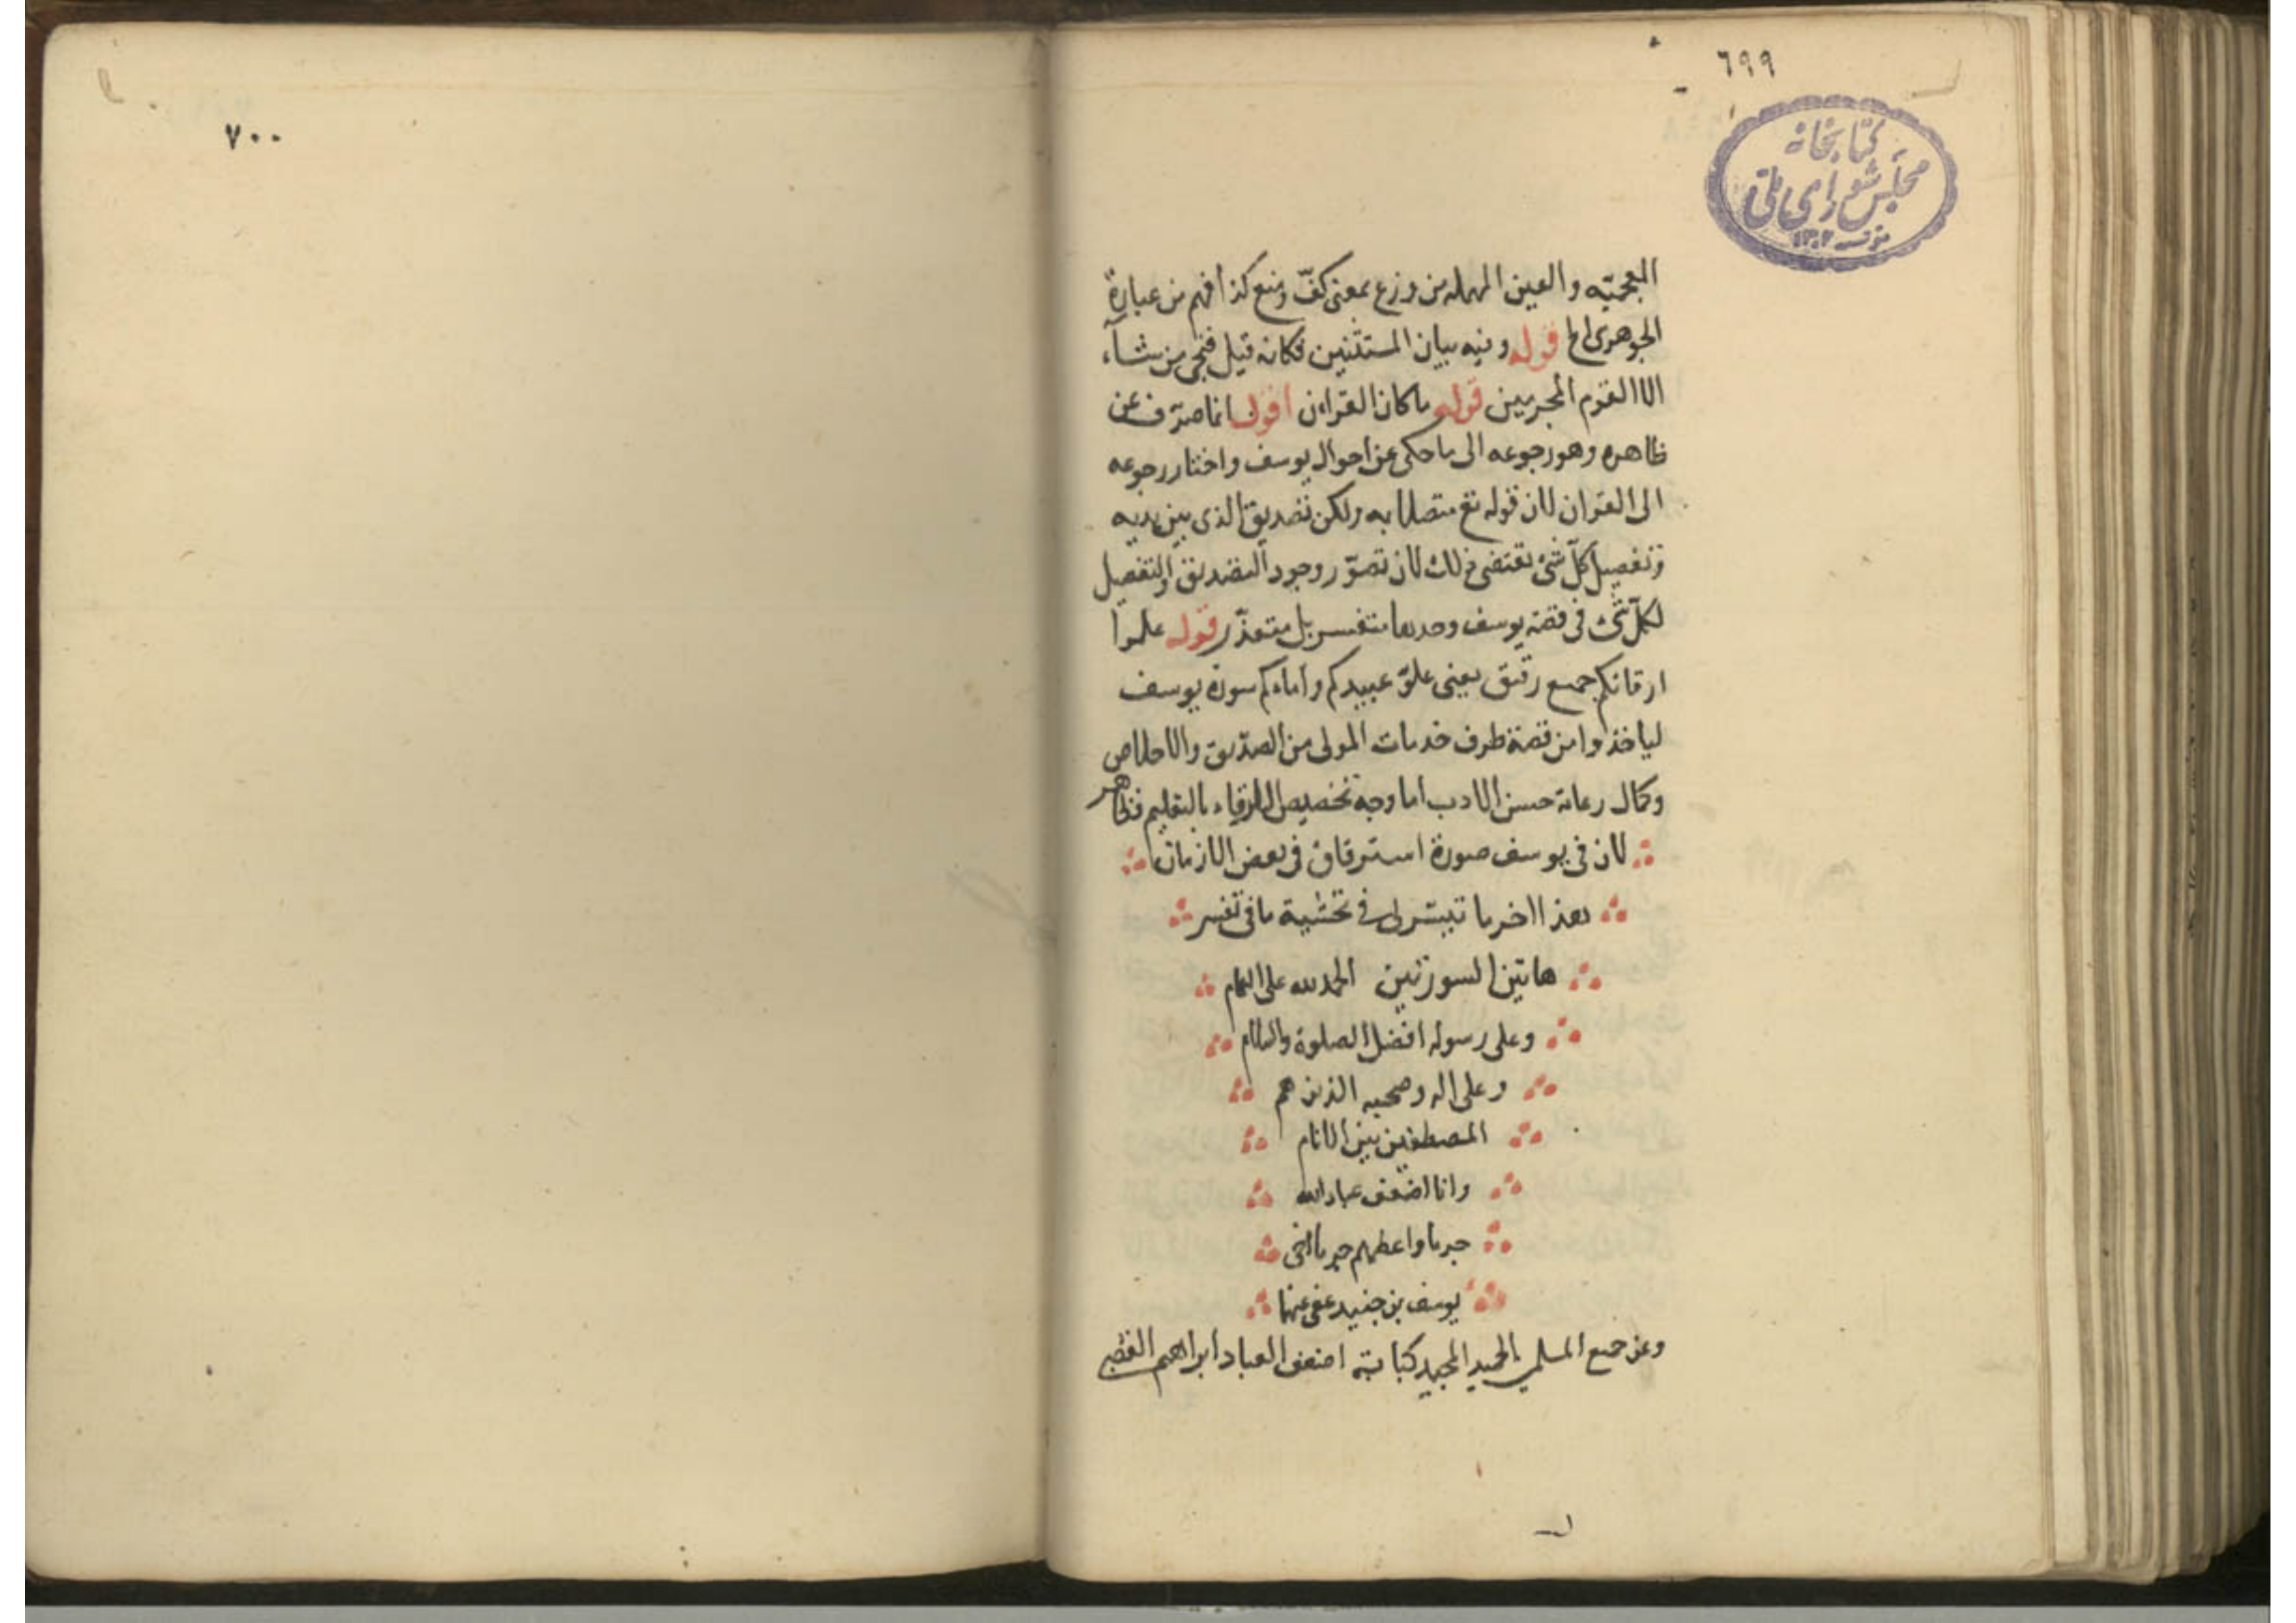 ٦٩٩
كتابخانه
مجلس شورای ملی
١٣٠٢
المعجمة والعين المهمله من وزع بمعنى كفّ ومنع كذا فهم من عبارة
الجوهرى الخ قوله وفيه بيان المستثنين فكانه قيل فنجى من نشاء
الا القوم المجرمين قوله ما كان القران اقول انما صرف عن
ظاهره وهو رجوعه الى ما حكى عن احوال يوسف واختار رجوعه
الى القران لان قوله تع متصلا به ولكن تصديق الذى بين يديه
وتفصيل كلّ شئ يقتضى ذلك لان تصوّر وجود التصديق والتفصيل
لكلّ شئ فى قصة يوسف وحدها متعسر بل متعذّر قوله علموا
ارقائكم جمع رقيق يعنى علمو عبيدكم واماءكم سورة يوسف
لياخذوا من قصة طرف خدمات المولى من الصديق والاخلاص
وكمال رعاية حسن الادب اما وجه تخصيص الارقاء بالتعليم فظاهر
لان فى يوسف صورة استرقاق فى بعض الازمان
هذا اخر ما تيسر لى فى تحشية ما فى تفسير
هاتين السورتين الحمد لله على التمام
وعلى رسوله افضل الصلوة والسلام
وعلى اله وصحبه الذين هم
المصطفين بين الانام
وانا اضعف عباد الله
جرما واعظمهم جرما اخى
يوسف بن جنيد عفى عنهما
وعن جميع المسلمين بالحميد المجيد كتابته اضعف العباد ابراهيم القصبى
٧٠٠